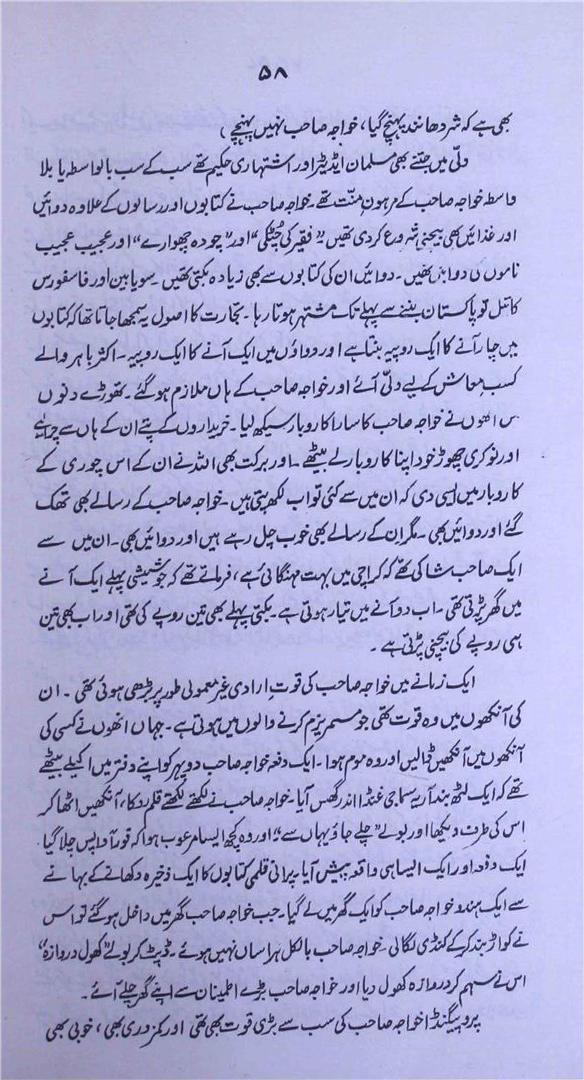 ۵۸
بھی ہے کہ شردھانند پہنچ گیا، خواجہ صاحب نہیں پہنچے)
دلّی میں جتنے بھی مسلمان ایڈیٹر اور اشتہاری حکیم تھے سب کے سب بالواسطہ یا بلا
واسطہ خواجہ صاحب کے مرہونِ منّت تھے۔ خواجہ صاحب نے کتابوں اور رسالوں کے علاوہ دوائیں
اور غذائیں بھی بیچنی شروع کر دی تھیں۔ ”فقیر کی چٹکی“ اور ”چودہ چھوارے“ اور عجیب عجیب
ناموں کی دوائیں تھیں۔ دوائیں ان کی کتابوں سے بھی زیادہ بکتی تھیں۔ سویا بین اور فاسفورس
کا تل تو پاکستان بننے سے پہلے تک مشتہر ہوتا رہا۔ تجارت کا اصول یہ سمجھا جاتا تھا کہ کتابوں
میں چار آنے کا ایک روپیہ بنتا ہے اور دواؤں میں ایک آنے کا ایک روپیہ۔ اکثر باہر والے
کسبِ معاش کے لیے دلّی آئے اور خواجہ صاحب کے ہاں ملازم ہو گئے۔ تھوڑے دنوں
میں انھوں نے خواجہ صاحب کا سارا کاروبار سیکھ لیا۔ خریداروں کے پتے ان کے ہاں سے چرا لیے
اور نوکری چھوڑ خود اپنا کاروبار لے بیٹھے۔ اور برکت بھی اللہ نے ان کے اس چوری کے
کاروبار میں ایسی دی کہ ان میں سے کئی تو اب لکھ پتی ہیں۔ خواجہ صاحب کے رسالے بھی تھک
گئے اور دوائیں بھی۔ مگر ان کے رسالے بھی خوب چل رہے ہیں اور دوائیں بھی۔ ان میں سے
ایک صاحب شاکی تھے کہ کراچی میں بہت مہنگائی ہے، فرماتے تھے کہ جو شیشی پہلے ایک آنے
میں گھر پڑتی تھی۔ اب دو آنے میں تیار ہوتی ہے۔ بکتی پہلے بھی تین روپے کی تھی اور اب بھی تین
ہی روپے کی بیچنی پڑتی ہے۔
ایک زمانے میں خواجہ صاحب کی قوتِ ارادی غیر معمولی طور پر بڑھی ہوئی تھی۔ ان
کی آنکھوں میں وہ قوت تھی جو مسمریزم کرنے والوں میں ہوتی ہے۔ جہاں انھوں نے کسی کی
آنکھوں میں آنکھیں ڈالیں اور وہ موم ہوا۔ ایک دفعہ خواجہ صاحب دوپہر کو اپنے دفتر میں اکیلے بیٹھے
تھے کہ ایک لٹھ بند آریہ سماجی غنڈا اندر گھس آیا۔ خواجہ صاحب نے لکھتے لکھتے قلم روکا، آنکھیں اٹھا کر
اس کی طرف دیکھا اور بولے ”چلے جاؤ یہاں سے“ اور وہ کچھ ایسا مرعوب ہوا کہ فوراً واپس چلا گیا
ایک دفعہ اور ایک ایسا ہی واقعہ پیش آیا۔ پرانی قلمی کتابوں کا ایک ذخیرہ دکھانے کے بہانے
سے ایک ہندو خواجہ صاحب کو ایک گھر میں لے گیا۔ جب خواجہ صاحب گھر میں داخل ہو گئے تو اس
نے کواڑ بند کر کے کنڈی لگا لی۔ خواجہ صاحب بالکل ہراساں نہیں ہوئے۔ ڈپٹ کر بولے ”کھول دروازہ“
اس نے سہم کر دروازہ کھول دیا اور خواجہ صاحب بڑے اطمینان سے اپنے گھر چلے آئے۔
پروپیگنڈا خواجہ صاحب کی سب سے بڑی قوت بھی تھی اور کمزوری بھی، خوبی بھی